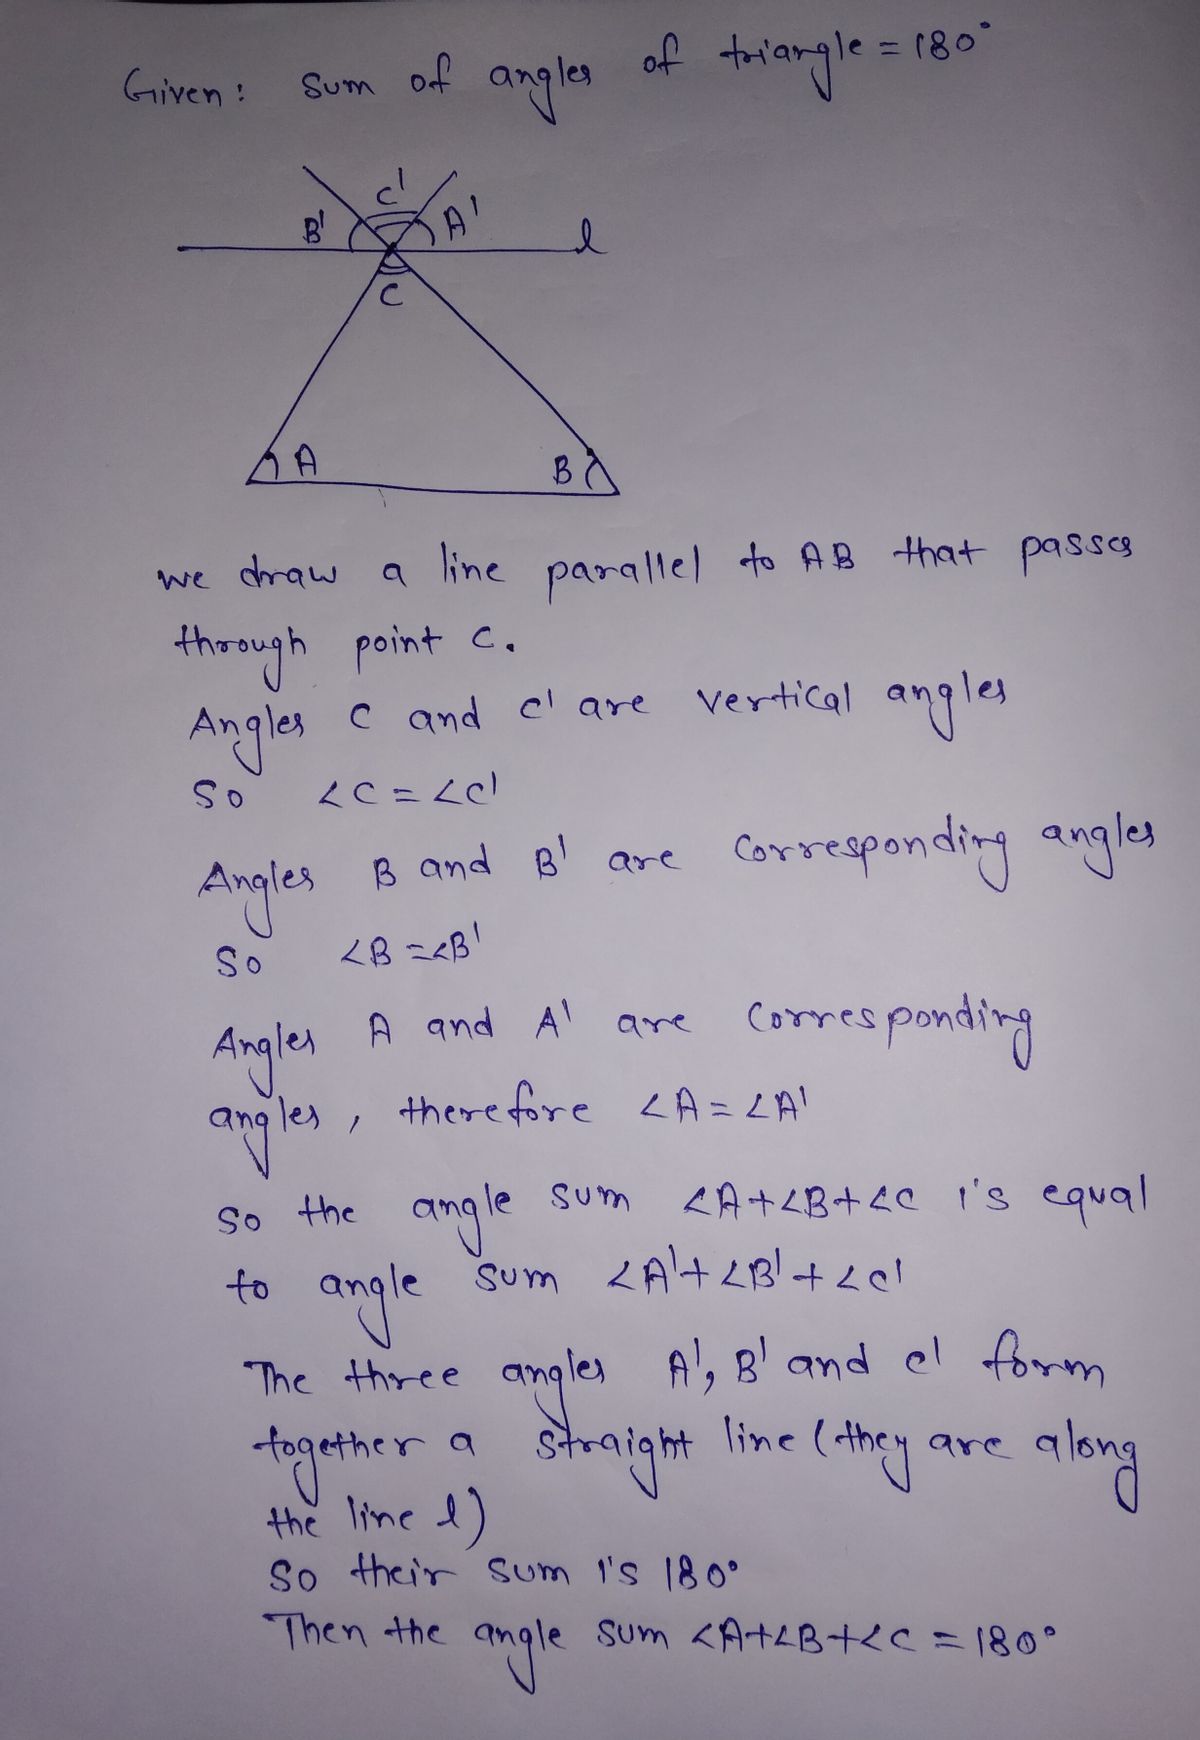 Given: Sum of angles of triangle = 180°
C'
B'
A'
l
C
A
B
we draw a line parallel to AB that passes
through point C.
Angles C and C' are vertical angles
So ∠C = ∠C'
Angles B and B' are Corresponding angles
So ∠B = ∠B'
Angles A and A' are Corresponding
angles, therefore ∠A = ∠A'
So the angle sum ∠A+∠B+∠C is equal
to angle sum ∠A'+∠B'+∠C'
The three angles A', B' and C' form
together a straight line (they are along
the line l)
So their sum is 180°
Then the angle sum ∠A+∠B+∠C = 180°